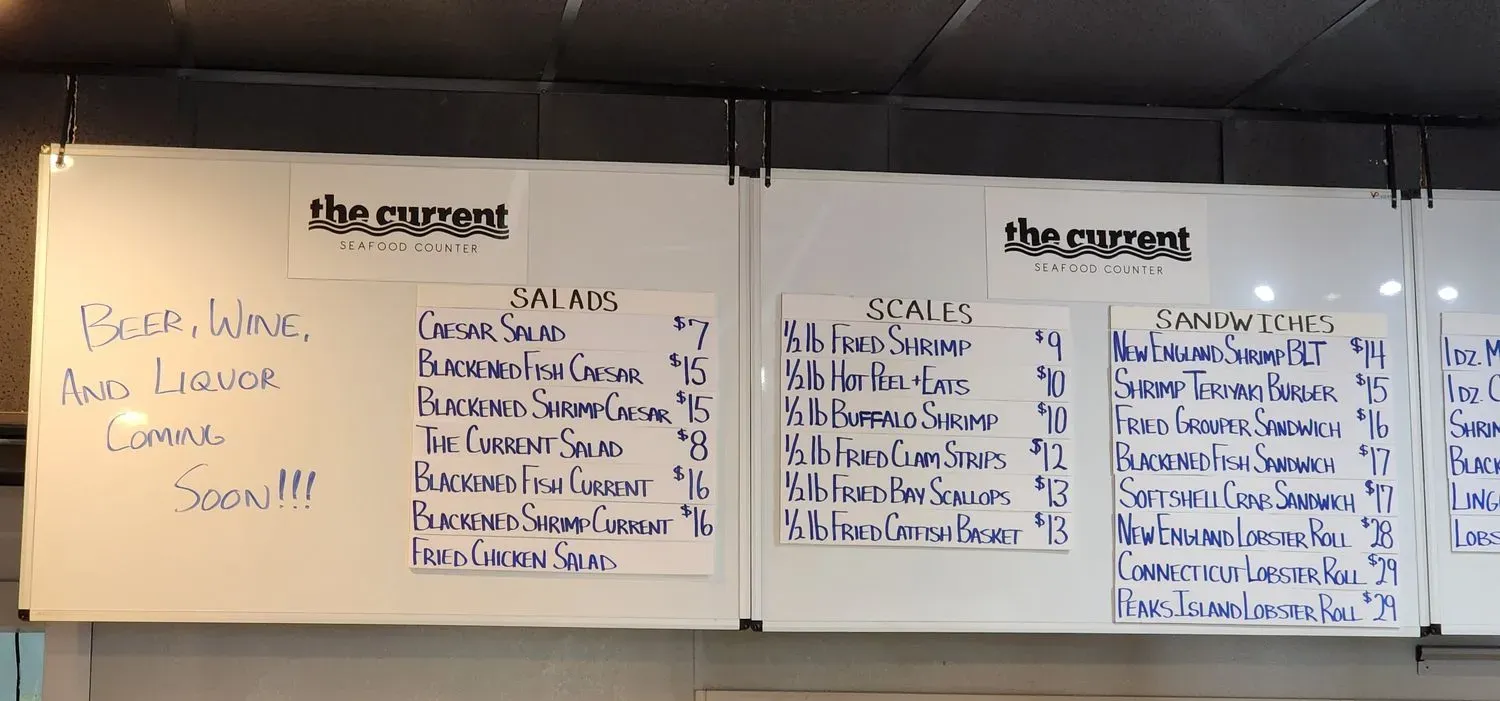 the current
SEAFOOD COUNTER
BEER, WINE,
AND LIQUOR
COMING
SOON!!!
SALADS
CAESAR SALAD $7
BLACKENED FISH CAESAR $15
BLACKENED SHRIMP CAESAR $15
THE CURRENT SALAD $8
BLACKENED FISH CURRENT $16
BLACKENED SHRIMP CURRENT $16
FRIED CHICKEN SALAD
the current
SEAFOOD COUNTER
SCALES
1/2 lb FRIED SHRIMP $9
1/2 lb HOT PEEL + EATS $10
1/2 lb BUFFALO SHRIMP $10
1/2 lb FRIED CLAM STRIPS $12
1/2 lb FRIED BAY SCALLOPS $13
1/2 lb FRIED CATFISH BASKET $13
SANDWICHES
NEW ENGLAND SHRIMP BLT $14
SHRIMP TERIYAKI BURGER $15
FRIED GROUPER SANDWICH $16
BLACKENED FISH SANDWICH $17
SOFTSHELL CRAB SANDWICH $17
NEW ENGLAND LOBSTER ROLL $28
CONNECTICUT LOBSTER ROLL $29
PEAKS ISLAND LOBSTER ROLL $29
1 DZ.
1 DZ.